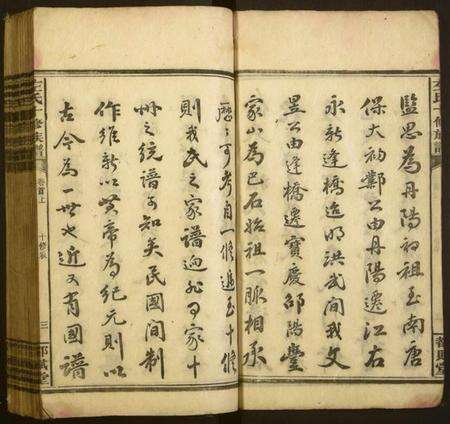 監思為丹陽初祖至南唐
保大初鄴公由丹陽遷江右
永新逢橋迨明洪武間我文
昱公由逢橋遷寶慶邵陽豐
家山為巴石始祖一脈相承
歷歷可考自一修迨至十修
則我氏之家譜迥非尋家十
卅之統譜可知矣民國間制
作維新以黃帝為紀元則以
古今為一世也近又有國譜
左氏十修族譜
卷首上
十修序
三